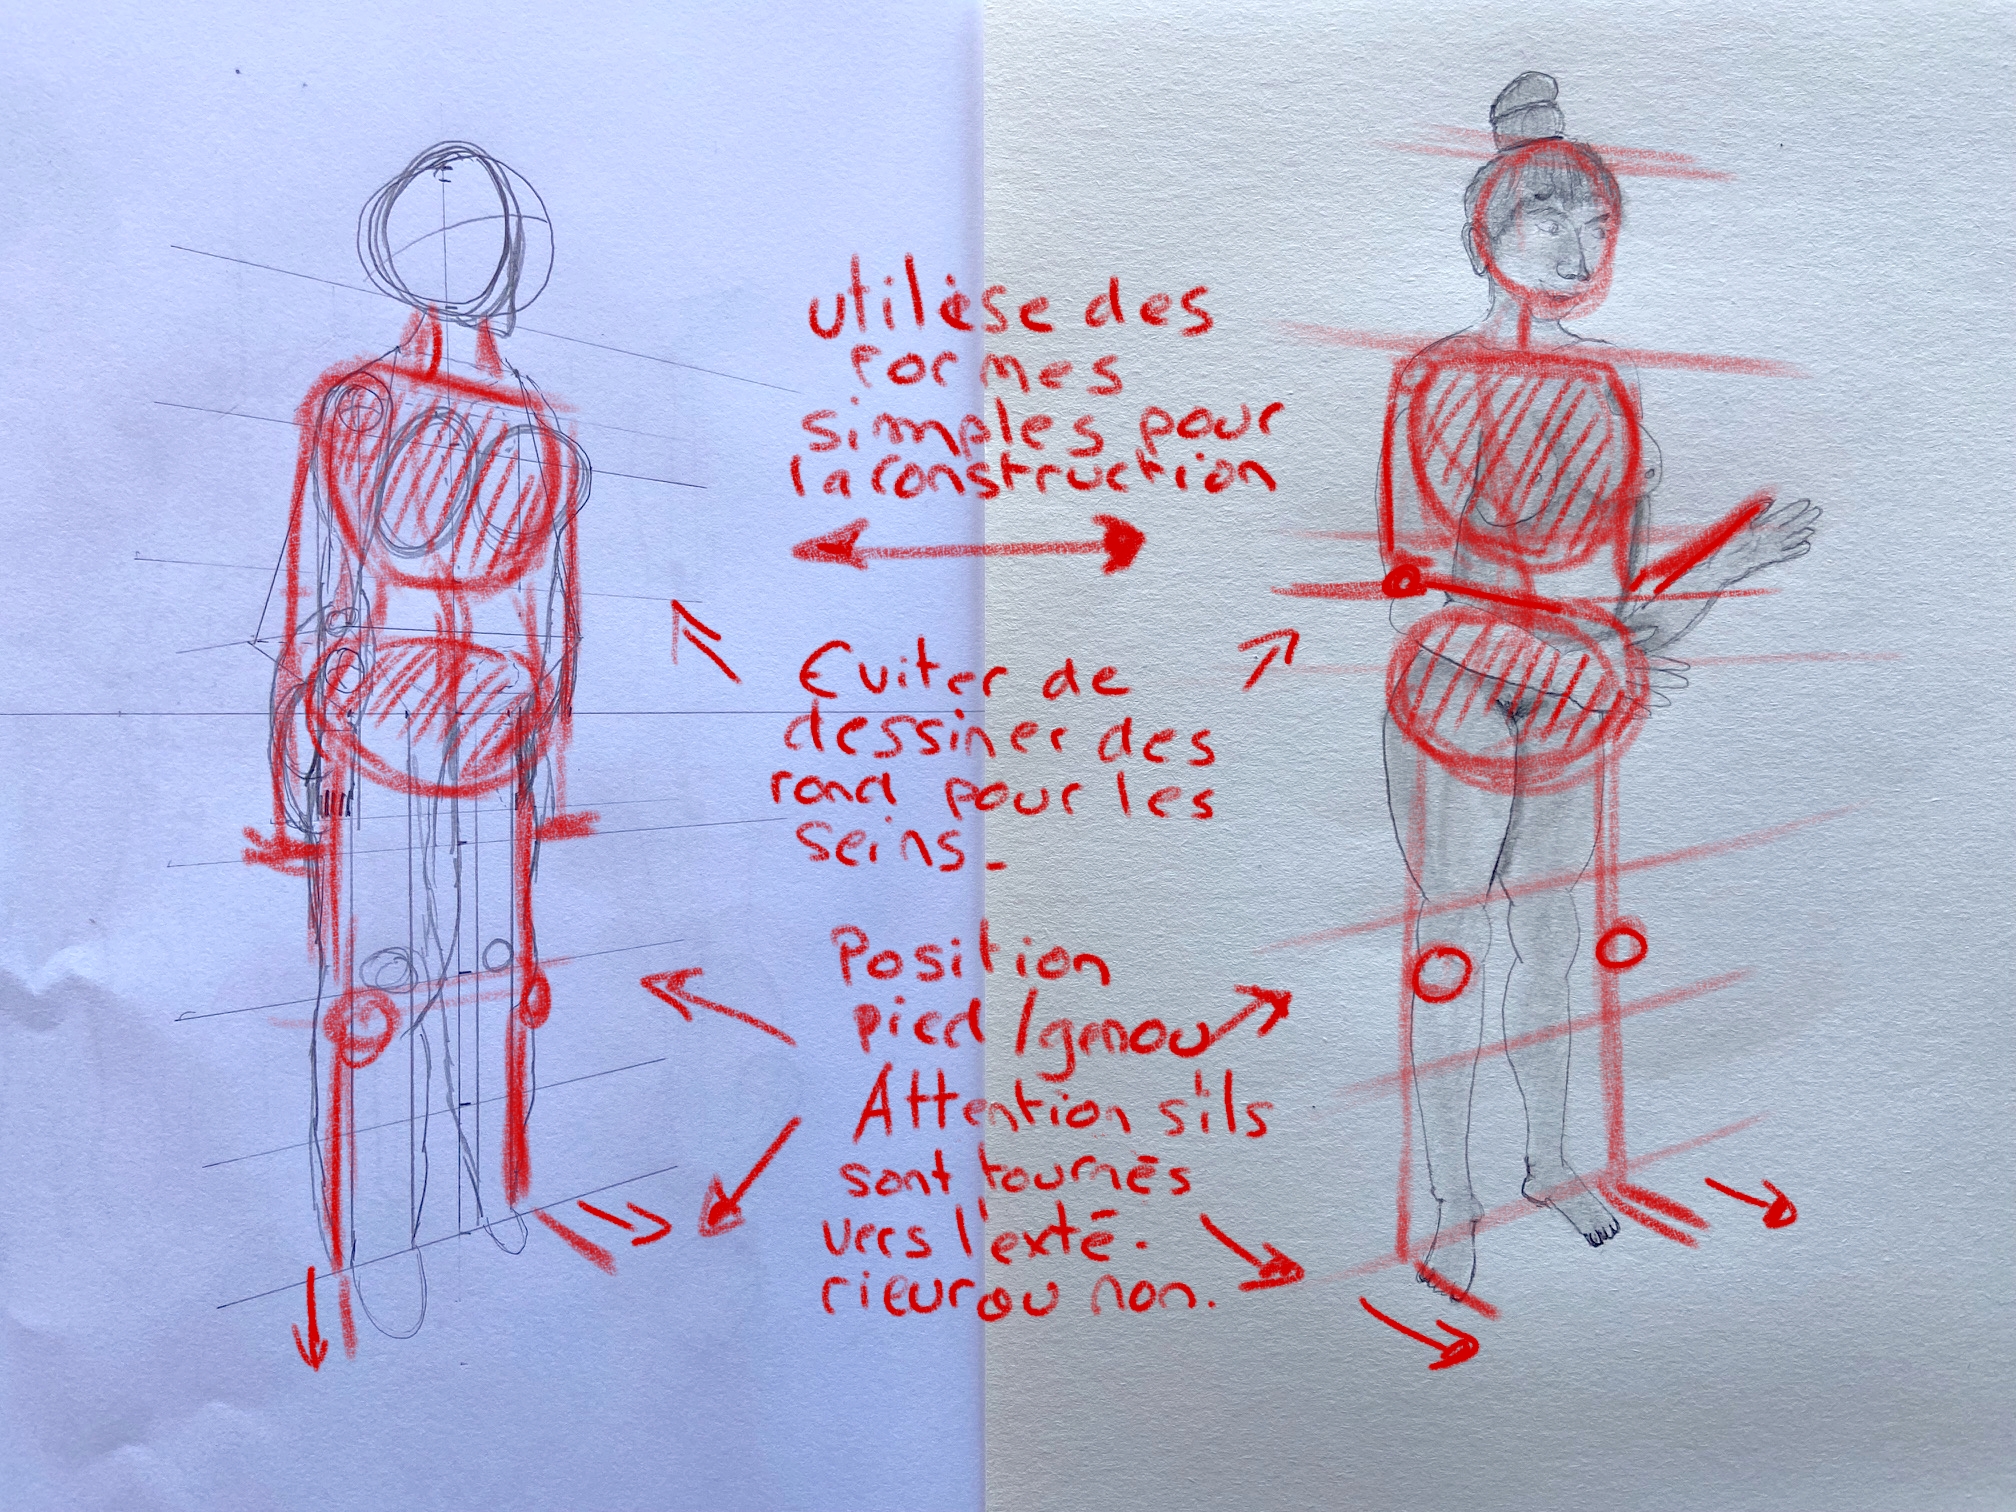 utilise des
formes
simples pour
la construction
Eviter de
dessiner des
rond pour les
seins_
Position
pied/genou
Attention s'ils
sont tournés
vers l'exté-
rieur ou non.